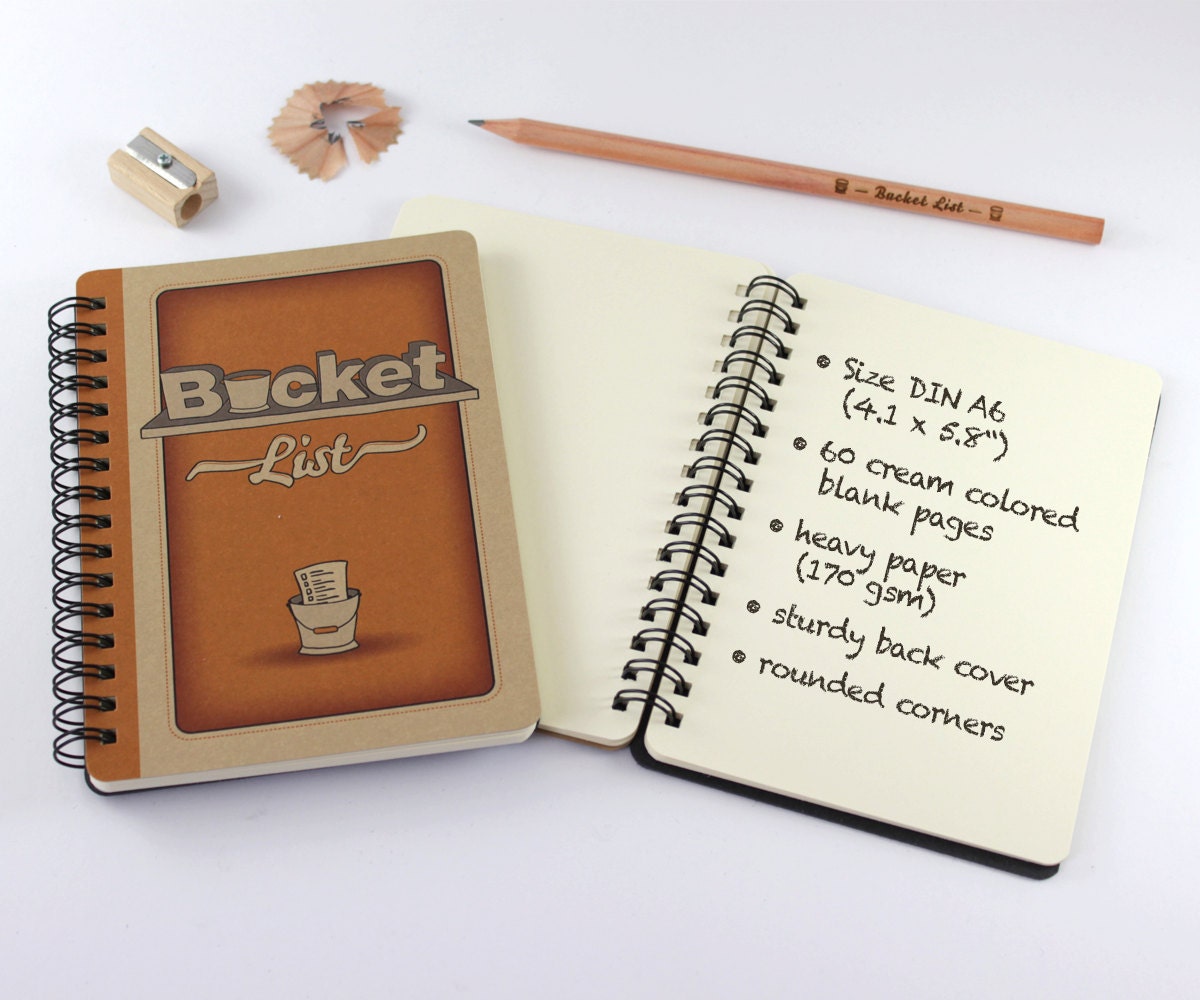 — Bucket List —
Bucket
List
• Size DIN A6
(4.1 x 5.8")
• 60 cream colored
blank pages
• heavy paper
(170 gsm)
• sturdy back cover
• rounded corners